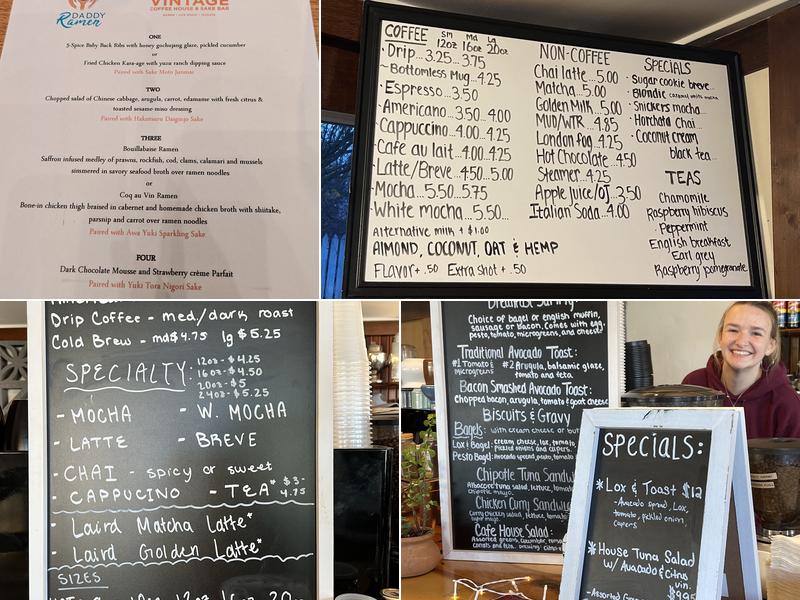 DADDY
Ramen
VINTAGE
COFFEE HOUSE & SAKE BAR
ONE
5-Spice Baby Back Ribs with honey gochujang glaze, pickled cucumber
or
Fried Chicken Kara-age with yuzu ranch dipping sauce
Paired with Sake Moto Junmai
TWO
Chopped salad of Chinese cabbage, arugula, carrot, edamame with fresh citrus &
toasted sesame miso dressing
Paired with Hakutsuru Daiginjo Sake
THREE
Bouillabaise Ramen
Saffron infused medley of prawns, rockfish, cod, clams, calamari and mussels
simmered in savory seafood broth over ramen noodles
or
Coq au Vin Ramen
Bone-in chicken thigh braised in cabernet and homemade chicken broth with shiitake,
parsnip and carrot over ramen noodles
Paired with Awa Yuki Sparkling Sake
FOUR
Dark Chocolate Mousse and Strawberry crème Parfait
Paired with Yuki Tora Nigori Sake
COFFEE Sm Md La
12oz 16oz 20oz
Drip...3.25...3.75
~Bottomless Mug...4.25
Espresso...3.50
Americano...3.50...4.00
Cappuccino...4.00...4.25
Cafe au lait...4.00...4.25
Latte/Breve...4.50...5.00
Mocha...5.50...5.75
White mocha...5.50...
Alternative milk + $1.00
ALMOND, COCONUT, OAT & HEMP
Flavor+ .50 Extra shot + .50
NON-COFFEE
Chai latte...5.00
Matcha...5.00
Golden Milk..5.00
MUD/WTR..4.85
London fog..4.25
Hot Chocolate..4.50
Steamer...4.25
Apple Juice/OJ..3.50
Italian Soda..4.00
SPECIALS
Sugar cookie breve...
Blondie caramel white mocha
Snickers mocha...
Horchata Chai...
Coconut cream
black tea...
TEAS
Chamomile
Raspberry hibiscus
Peppermint
English breakfast
Earl grey
Raspberry pomegranate
Drip Coffee - med./dark roast
Cold Brew - md $4.75 lg $5.25
SPECIALTY: 12oz - $4.25
16oz - $4.50
20oz - $5
24oz - $5.25
- MOCHA - W. MOCHA
- LATTE - BREVE
- CHAI - spicy or sweet
- CAPPUCINO - TEA* $3-
4.75
- Laird Matcha Latte*
- Laird Golden Latte*
SIZES
12oz 16oz 20oz
Breakfast
Choice of bagel or english muffin,
sausage or bacon. Comes with egg,
pesto, tomato, microgreens, and cheese
Traditional Avocado Toast:
#1 Tomato & #2 Arugula, balsamic glaze,
microgreens tomato and feta
Bacon Smashed Avocado Toast:
Chopped bacon, arugula, tomato & goat cheese
Biscuits & Gravy
Bagels: with cream cheese or
Lox & Bagel: cream cheese, lox, tomato,
pickled onions and capers.
Pesto Bagel: Avocado spread, pesto,
Chipotle Tuna
Albacore tuna salad, lettuce,
chipotle mayo.
Chicken Curry
Curry chicken salad, lettuce,
Cafe House Salad
Assorted greens, cucumber,
carrots and feta.
SPECIALS:
*Lox & Toast $12
-Avocado spread, Lox,
tomato, pickled onion,
capers
*House Tuna Salad
w/ Avocado & Citrus
vin.
$9.95
-Assorted